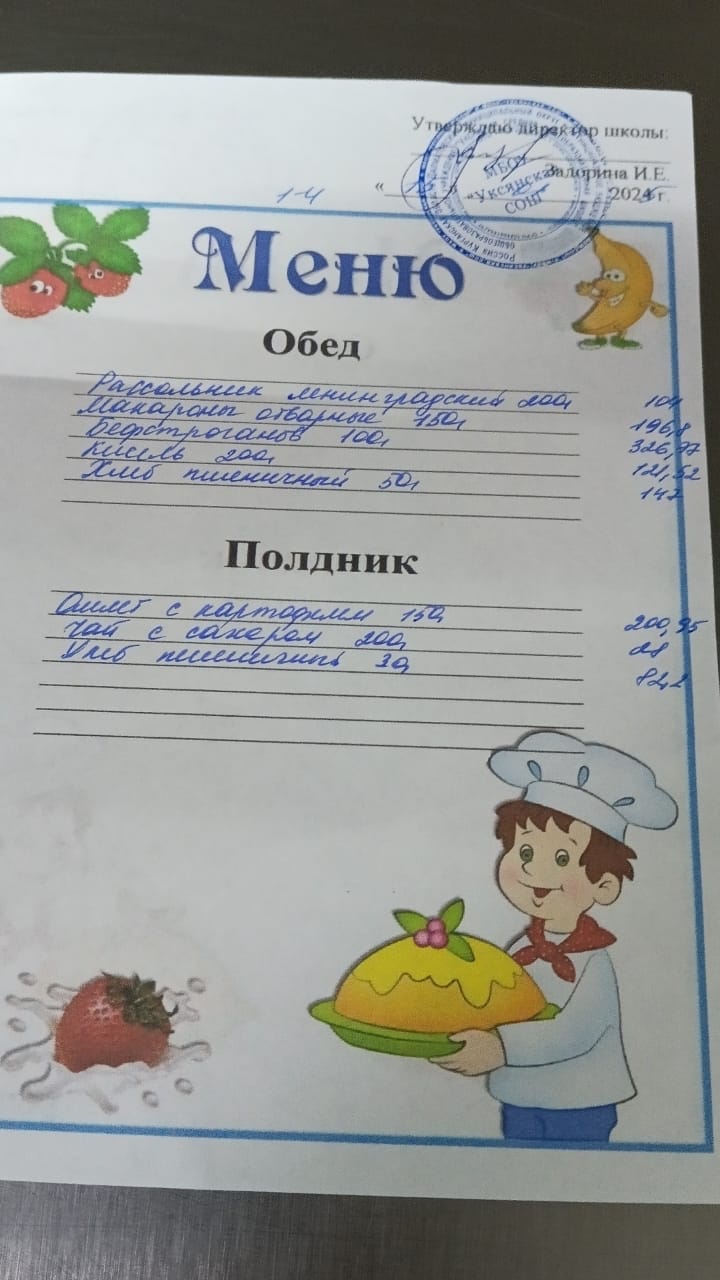 Утверждаю директор школы:
Задорина И.Е.
МБОУ
"Уксянская
СОШ"
1-4
2024 г.
Меню
Обед
Рассольник ленинградский 200г 104
Макароны отварные 150г 196,8
Бефстроганов 100г 326,77
Кисель 200г 121,52
Хлеб пшеничный 50г 147
Полдник
Омлет с картофелем 150г 200,95
Чай с сахаром 200г 28
Хлеб пшеничный 30г 82,2